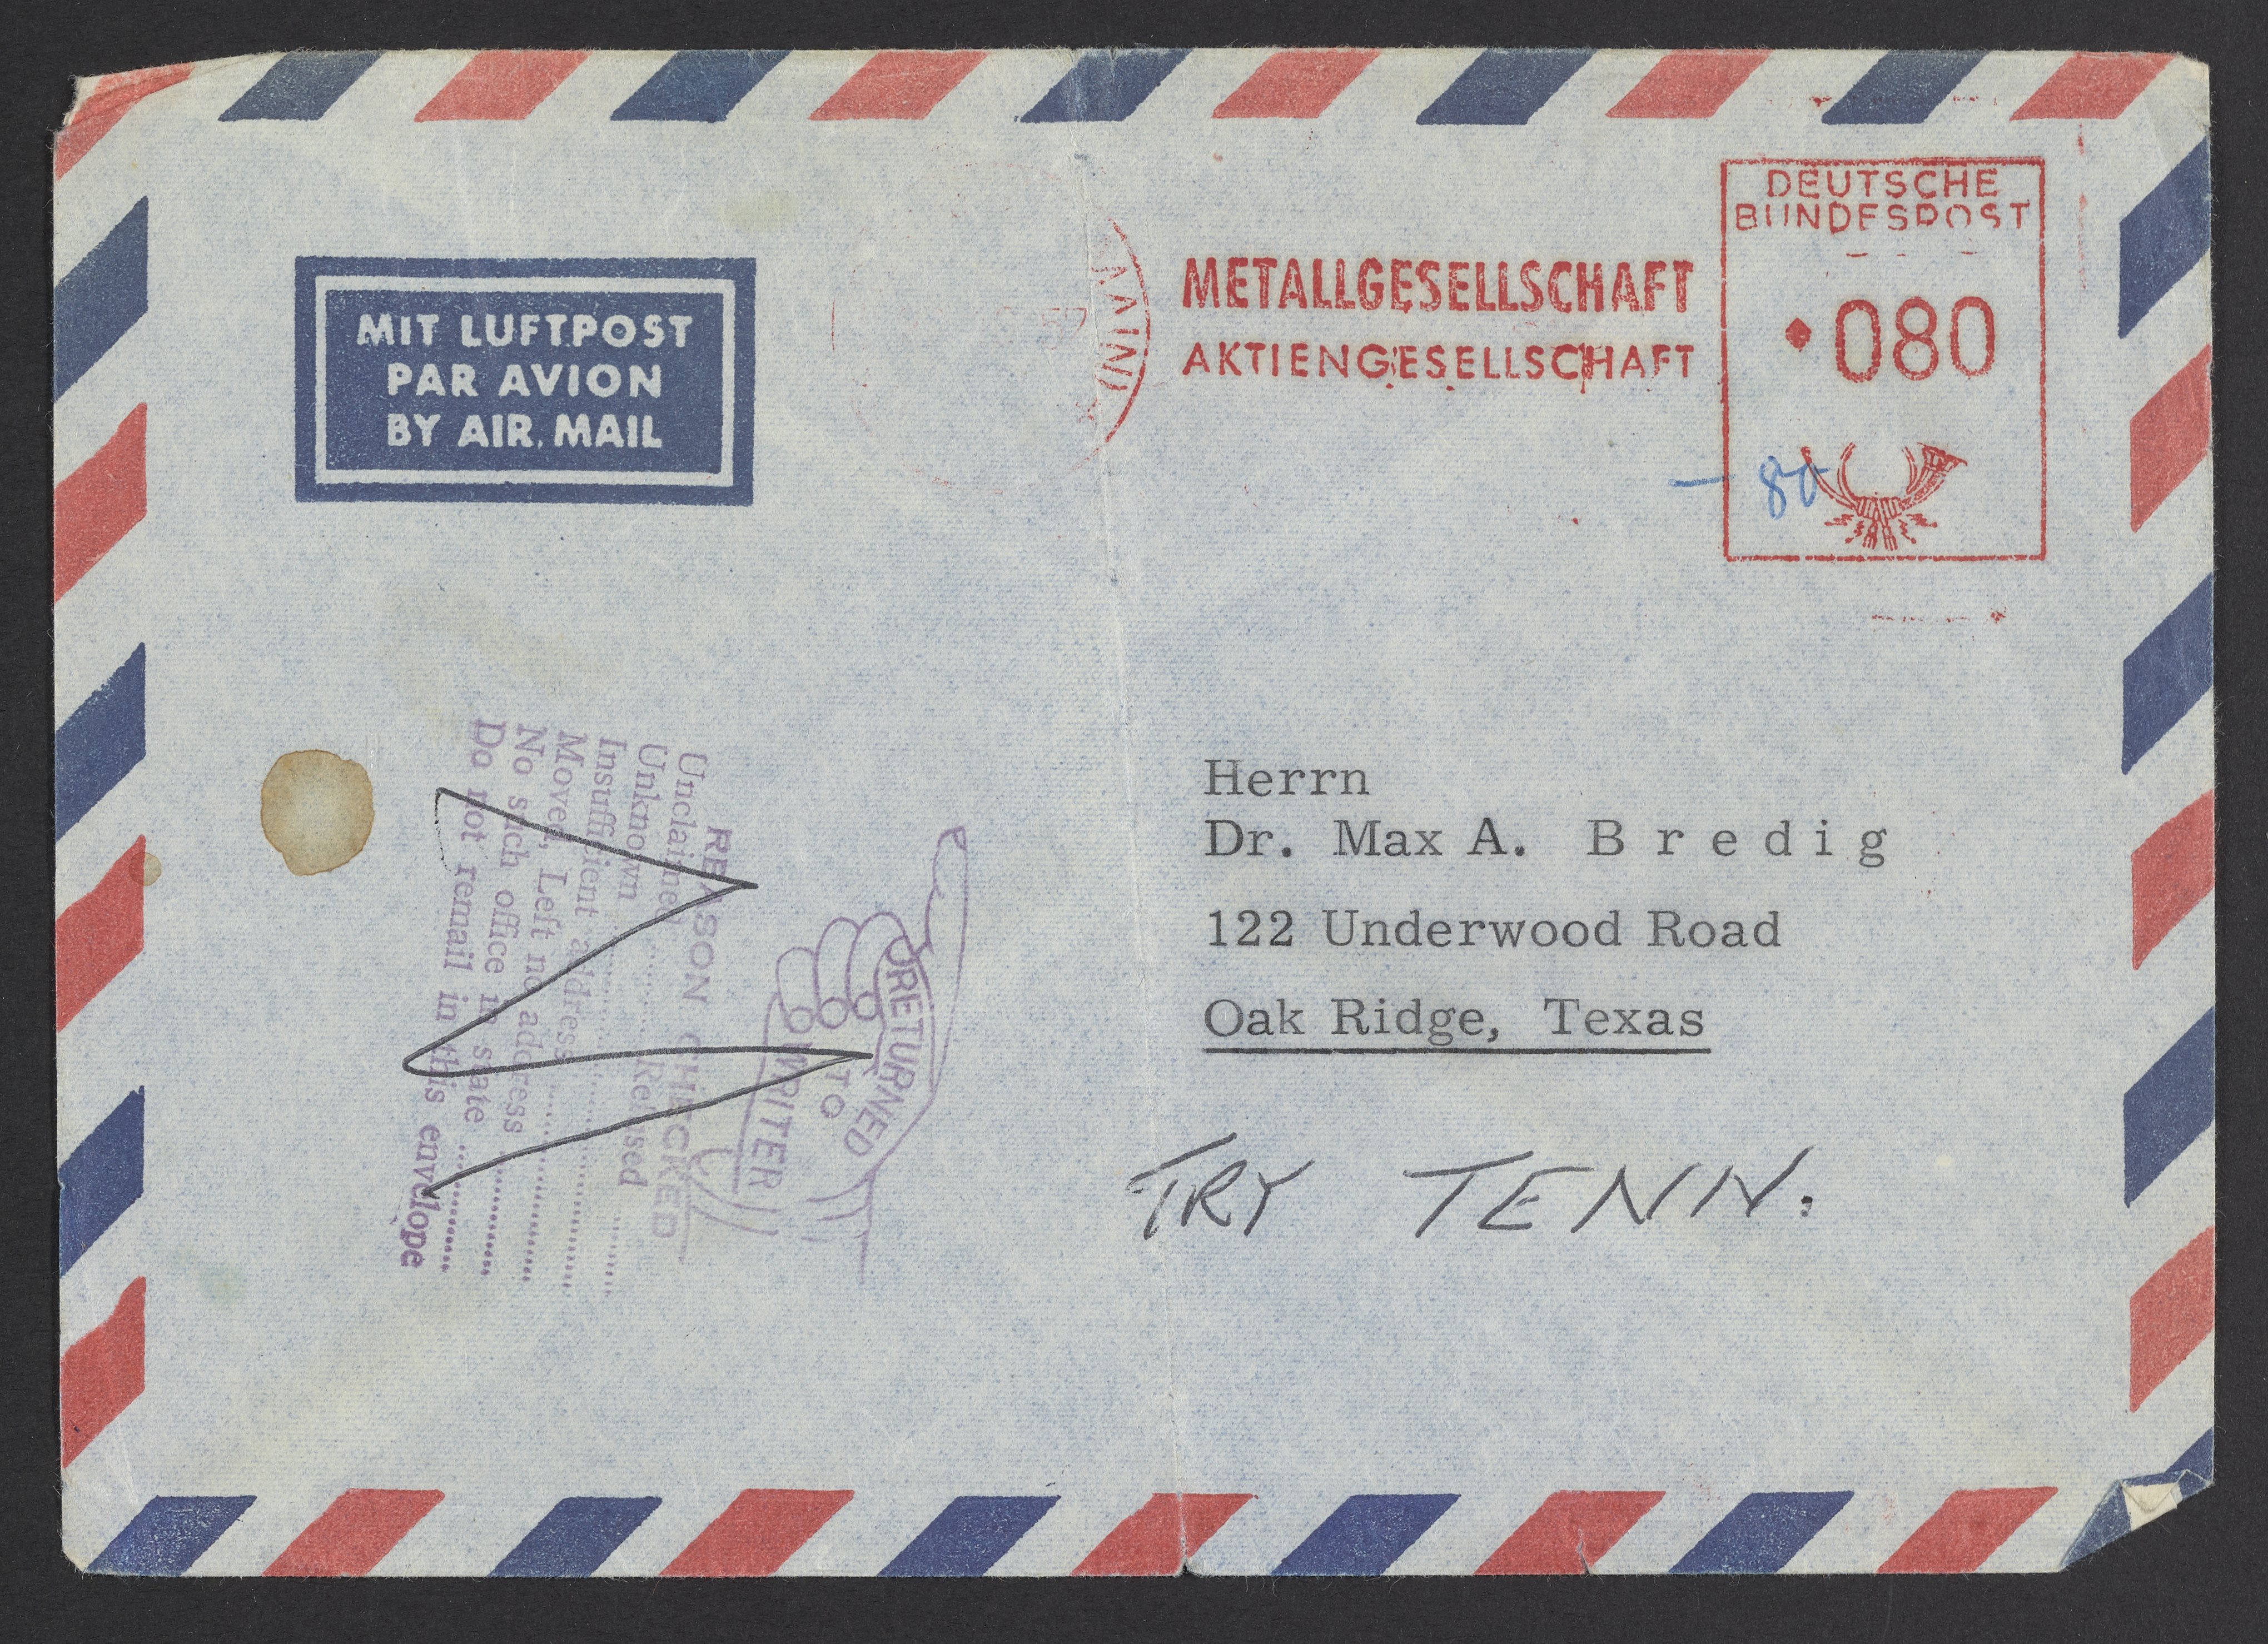 DEUTSCHE
BUNDESPOST
080
METALLGESELLSCHAFT
AKTIENGESELLSCHAFT
MAIN
57
- 80
MIT LUFTPOST
PAR AVION
BY AIR MAIL
Herrn
Dr. Max A. Bredig
122 Underwood Road
Oak Ridge, Texas
TRY TENN.
RETURNED
TO
WRITER
REASON CHECKED
Unclaimed ........ Refused ........
Unknown ........
Insufficient address ........
Moved, Left no address ........
No such office in state ........
Do not remail in this envelope